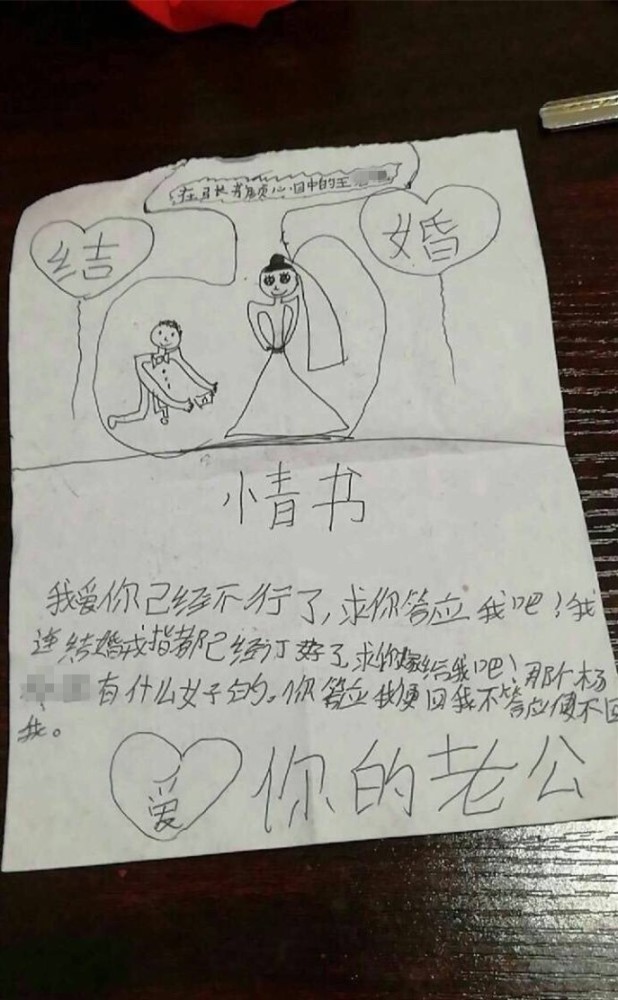 在 心目中的王
结
婚
情书
我爱你已经不行了,求你答应我吧!我
连结婚戒指都已经订好了,求你嫁给我吧!那个杨
有什么女子的。你答应我便回我不答应便不回
我。
爱 你的老公